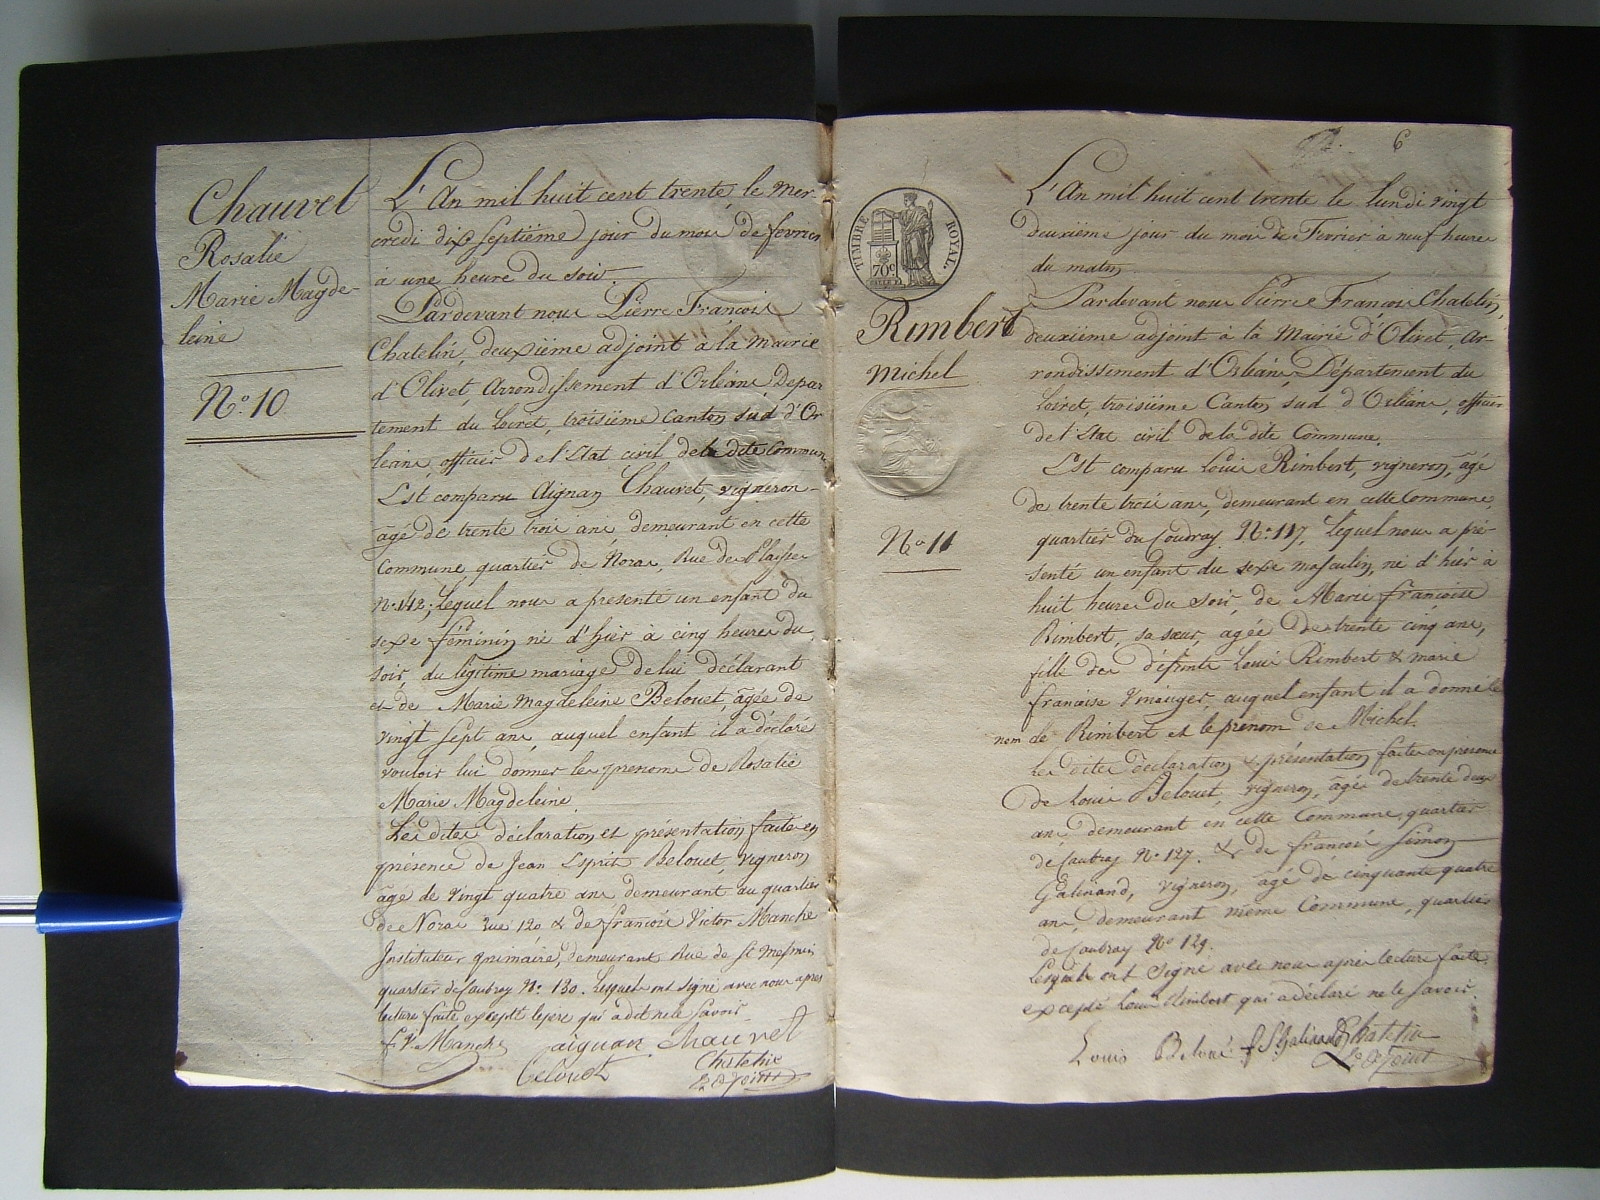 Chauvet
Rosalie
Marie Magde-
leine
N.º 10
L'An mil huit cent trente, le mer-
credi dix septième jour du mois de fevrier
à une heure du soir.
Pardevant nous Pierre François
Chatelin, deuxième adjoint à la mairie
d'Olivet, Arrondissement d'Orléans, Depar
tement du Loiret, troisième Canton sud d'Or
leans, officier de l'Etat civil de la dite Commune
Est comparu Aignan Chauvet, vigneron
âgé de trente trois ans demeurant en cette
Commune quartier de Noras, Rue de
Nº 142, lequel nous a presenté un enfant du
sexe féminin né d'hier à cinq heures du
soir, du légitime mariage de lui déclarant
et de Marie Magdeleine Belouet, âgée de
vingt sept ans, auquel enfant il a déclaré
vouloir lui donner les prenoms de Rosalie
Marie Magdeleine.
Les dites déclaration et présentation faites en
présence de Jean Esprit Belouet, vigneron
âgé de vingt quatre ans demeurant au quartier
de Noras 120 & de françois Victor Manche
Instituteur primaire, demeurant Rue de St Mesmin
quartier de Caubray Nº 130. Lesquels ont signé avec nous après
lecture faite excepté le pere qui a dit ne le savoir.
f. V. Manche aignan Chauvet
belouet Chatelin
2e adjoint
6
TIMBRE ROYAL.
70 c
Rimbert
Michel
Nº 11
L'An mil huit cent trente le lundi vingt
deuxième jour du mois de Fevrier à neuf heures
du matin
Pardevant nous Pierre François Chatelin,
deuxième adjoint à la Mairie d'Olivet, ar-
rondissement d'Orléans, Département du
Loiret, troisième Canton sud d'Orléans, officier
de l'Etat civil de la dite Commune.
Est comparu Louis Rimbert, vigneron, âgé
de trente trois ans, demeurant en cette Commune,
quartier du Coudray Nº 117, lequel nous a pré-
senté un enfant du sexe masculin, né d'hier à
huit heures du soir, de Marie françoise
Rimbert, sa sœur, agée de trente cinq ans,
fille des défunts Louis Rimbert & marie
françoise Vinauger, auquel enfant il a donné le
nom de Rimbert et le prénom de Michel.
les dites déclaration & présentation faites en présence
de Louis Belouet, vigneron, âgé de trente deux
ans, demeurant en cette Commune, quartier
de Caubray Nº 127. & de françois Simon
Galinand, vigneron, âgé de cinquante quatre
ans, demeurant même Commune, quartier
de Caubray Nº 129.
Lesquels ont signé avec nous après lecture faite.
excepté Louis Rimbert qui a déclaré ne le savoir.
Louis Beloué f S Galinand Chatelin
2e adjoint